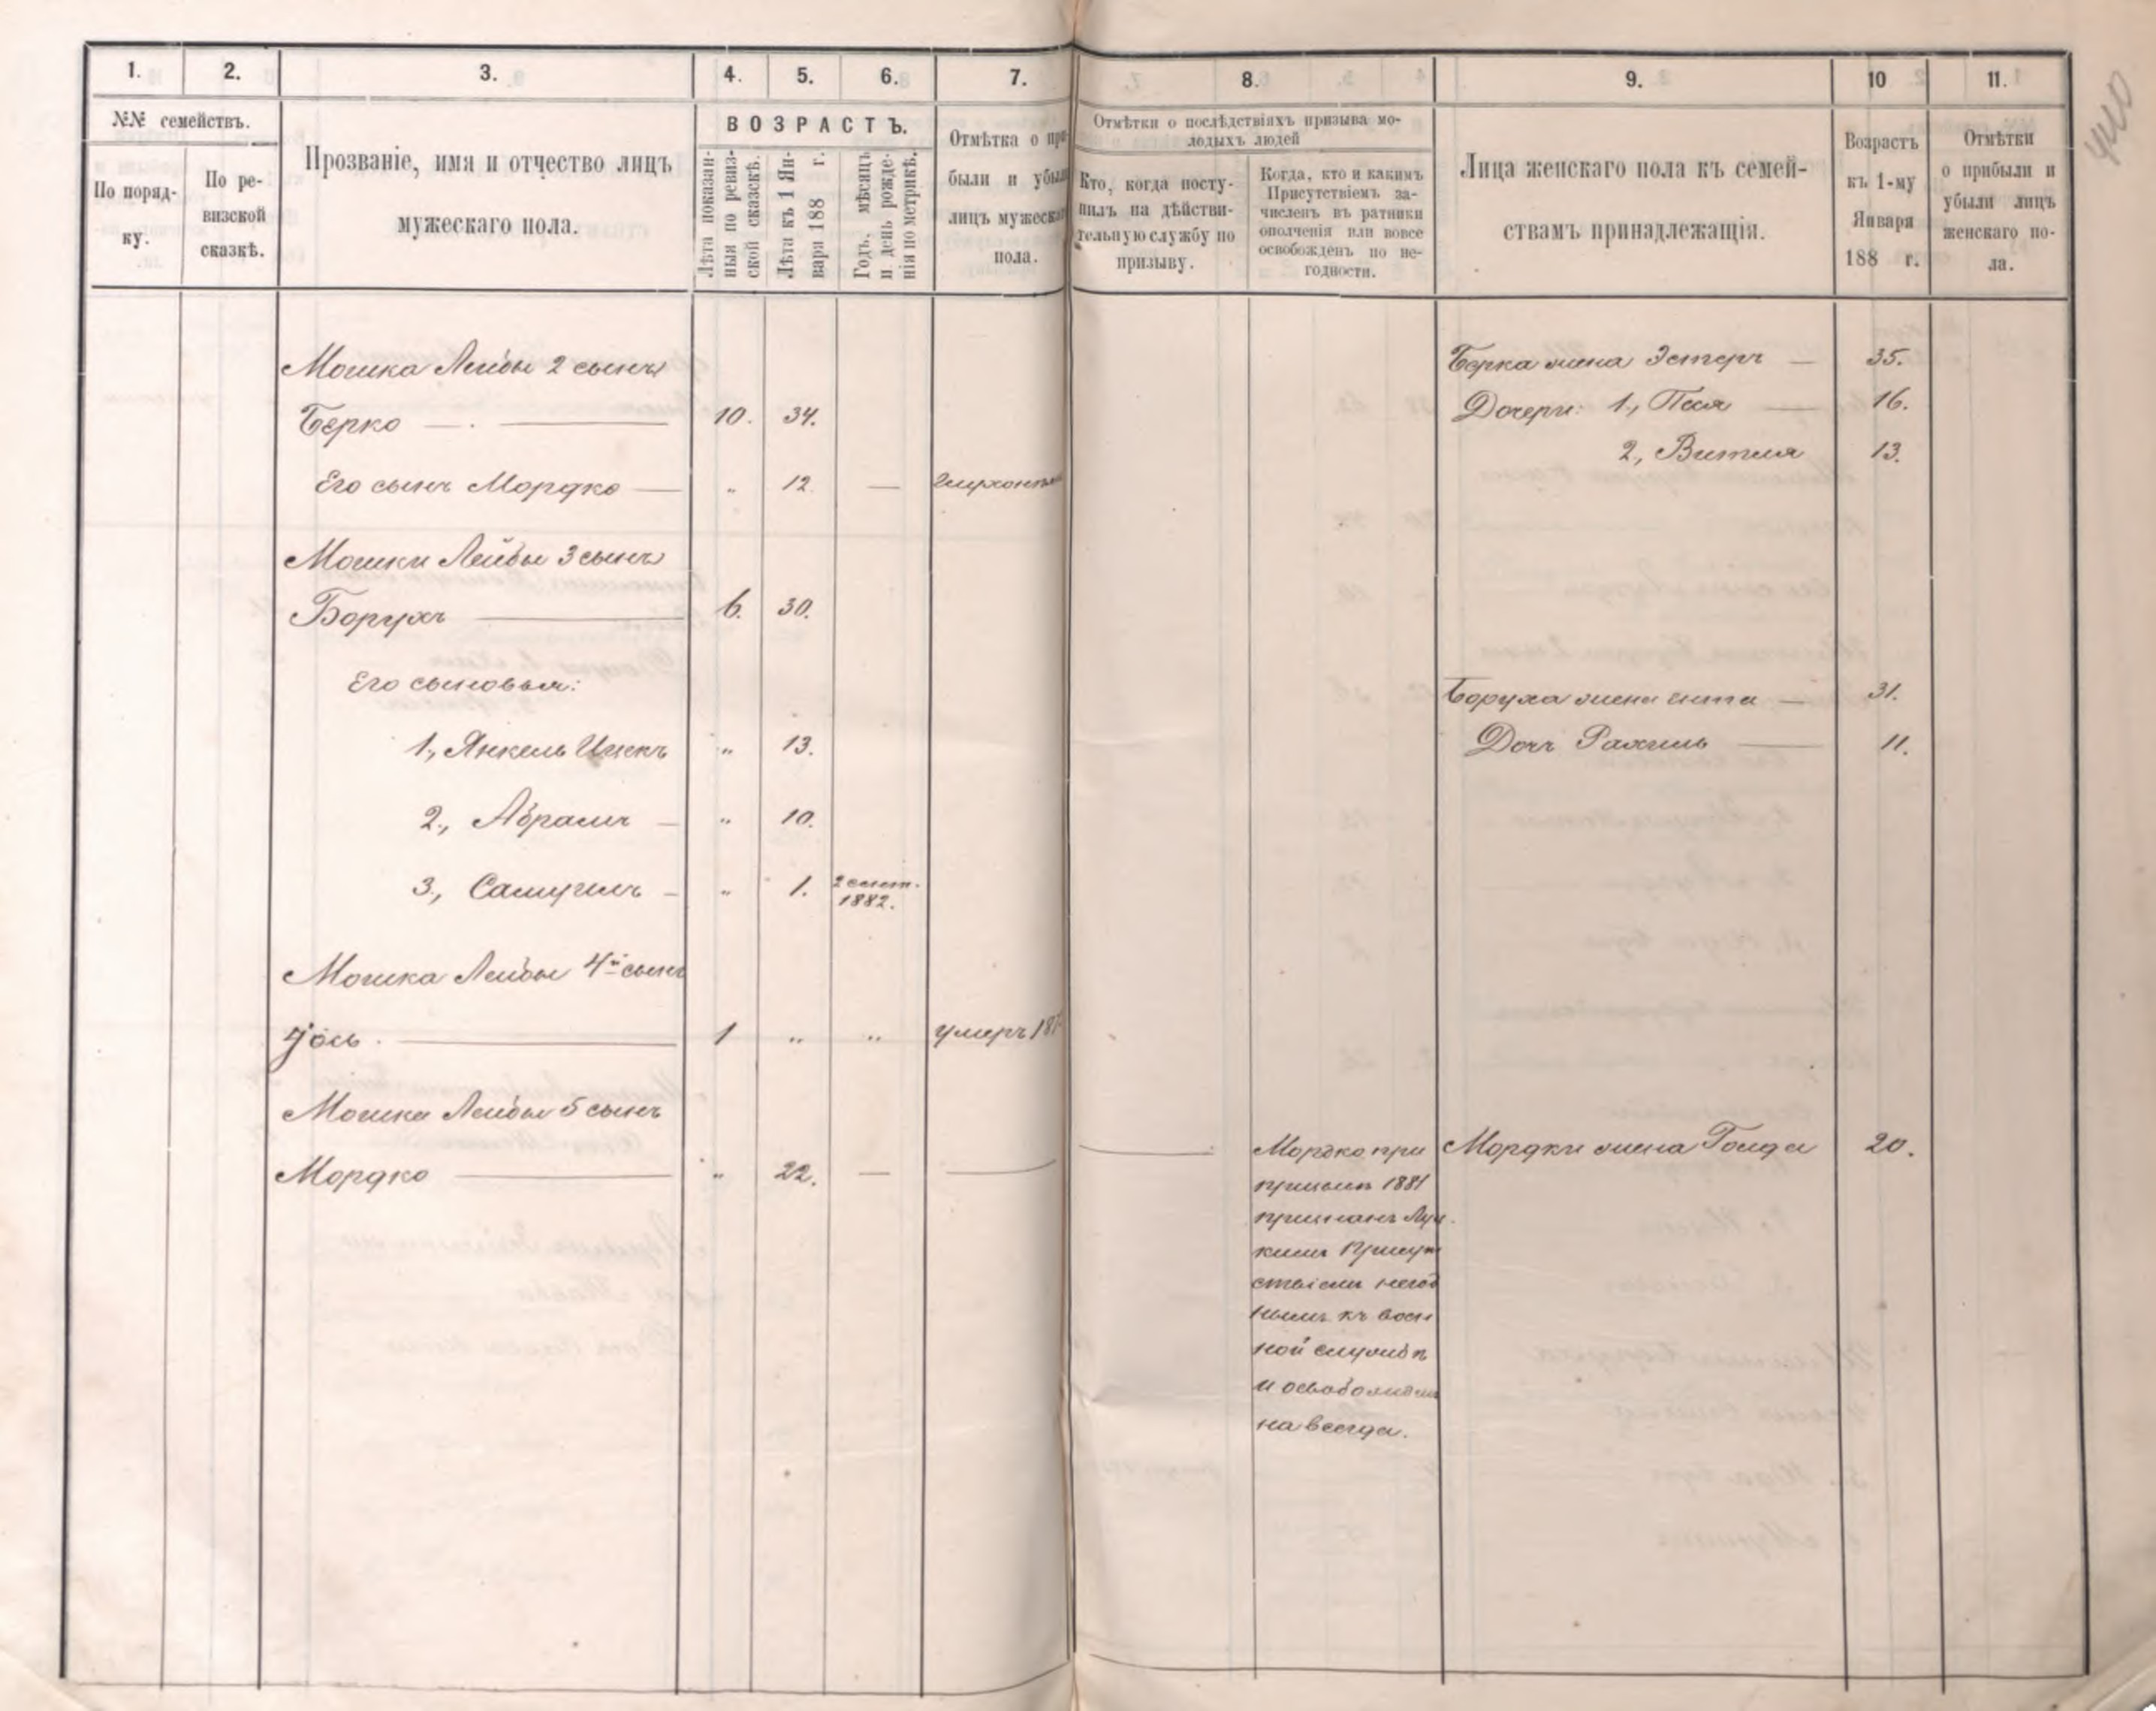 1.
2.
3.
4.
5.
6.
7.
8.
9.
10
11.
№№ семействъ.
По поряд-
ку.
По ре-
визской
сказкѣ.
Прозваніе, имя и отчество лицъ
мужескаго пола.
ВОЗРАСТЪ.
Лѣта показан-
ныя по ревиз-
ской сказкѣ.
Лѣта къ 1 Ян-
варя 188 г.
Годъ, мѣсяцъ
и день рожде-
нія по метрикѣ.
Отмѣтка о при-
были и убыли
лицъ мужескаго
пола.
Отмѣтки о послѣдствіяхъ призыва мо-
лодыхъ людей
Кто, когда посту-
пилъ на дѣйстви-
тельную службу по
призыву.
Когда, кто и какимъ
Присутствіемъ за-
численъ въ ратники
ополченія или вовсе
освобожденъ по не-
годности.
Лица женскаго пола къ семей-
ствамъ принадлежащія.
Возрастъ
къ 1-му
Января
188 г.
Отмѣтки
о прибыли и
убыли лицъ
женскаго по-
ла.
Мошка Лейбы 2 сынъ
Берко 10. 34.
Его сынъ Мордко „ 12
Мошки Лейбы 3 сынъ
Борухъ 6. 30.
Его сыновья:
1., Янкель Ицекъ „ 13.
2., Абрамъ „ 10.
3., Самуилъ „ 1. 2 сент.
1882.
Мошка Лейбы 4й сынъ
Іось 1 „ „ умеръ 187
Мошка Лейбы 5 сынъ
Мордко „ 22.
Мордко при
призывѣ 1881
признанъ Луц
кимъ Присут
ствіемъ негод
нымъ къ воен
ной службѣ
и освобожденъ
на всегда.
Берка жена Эстеръ 35.
Дочери: 1., Песя 16.
2., Витля 13.
Боруха жена Гита 31.
Дочь Рахиль 11.
Мордки жена Голда 20.